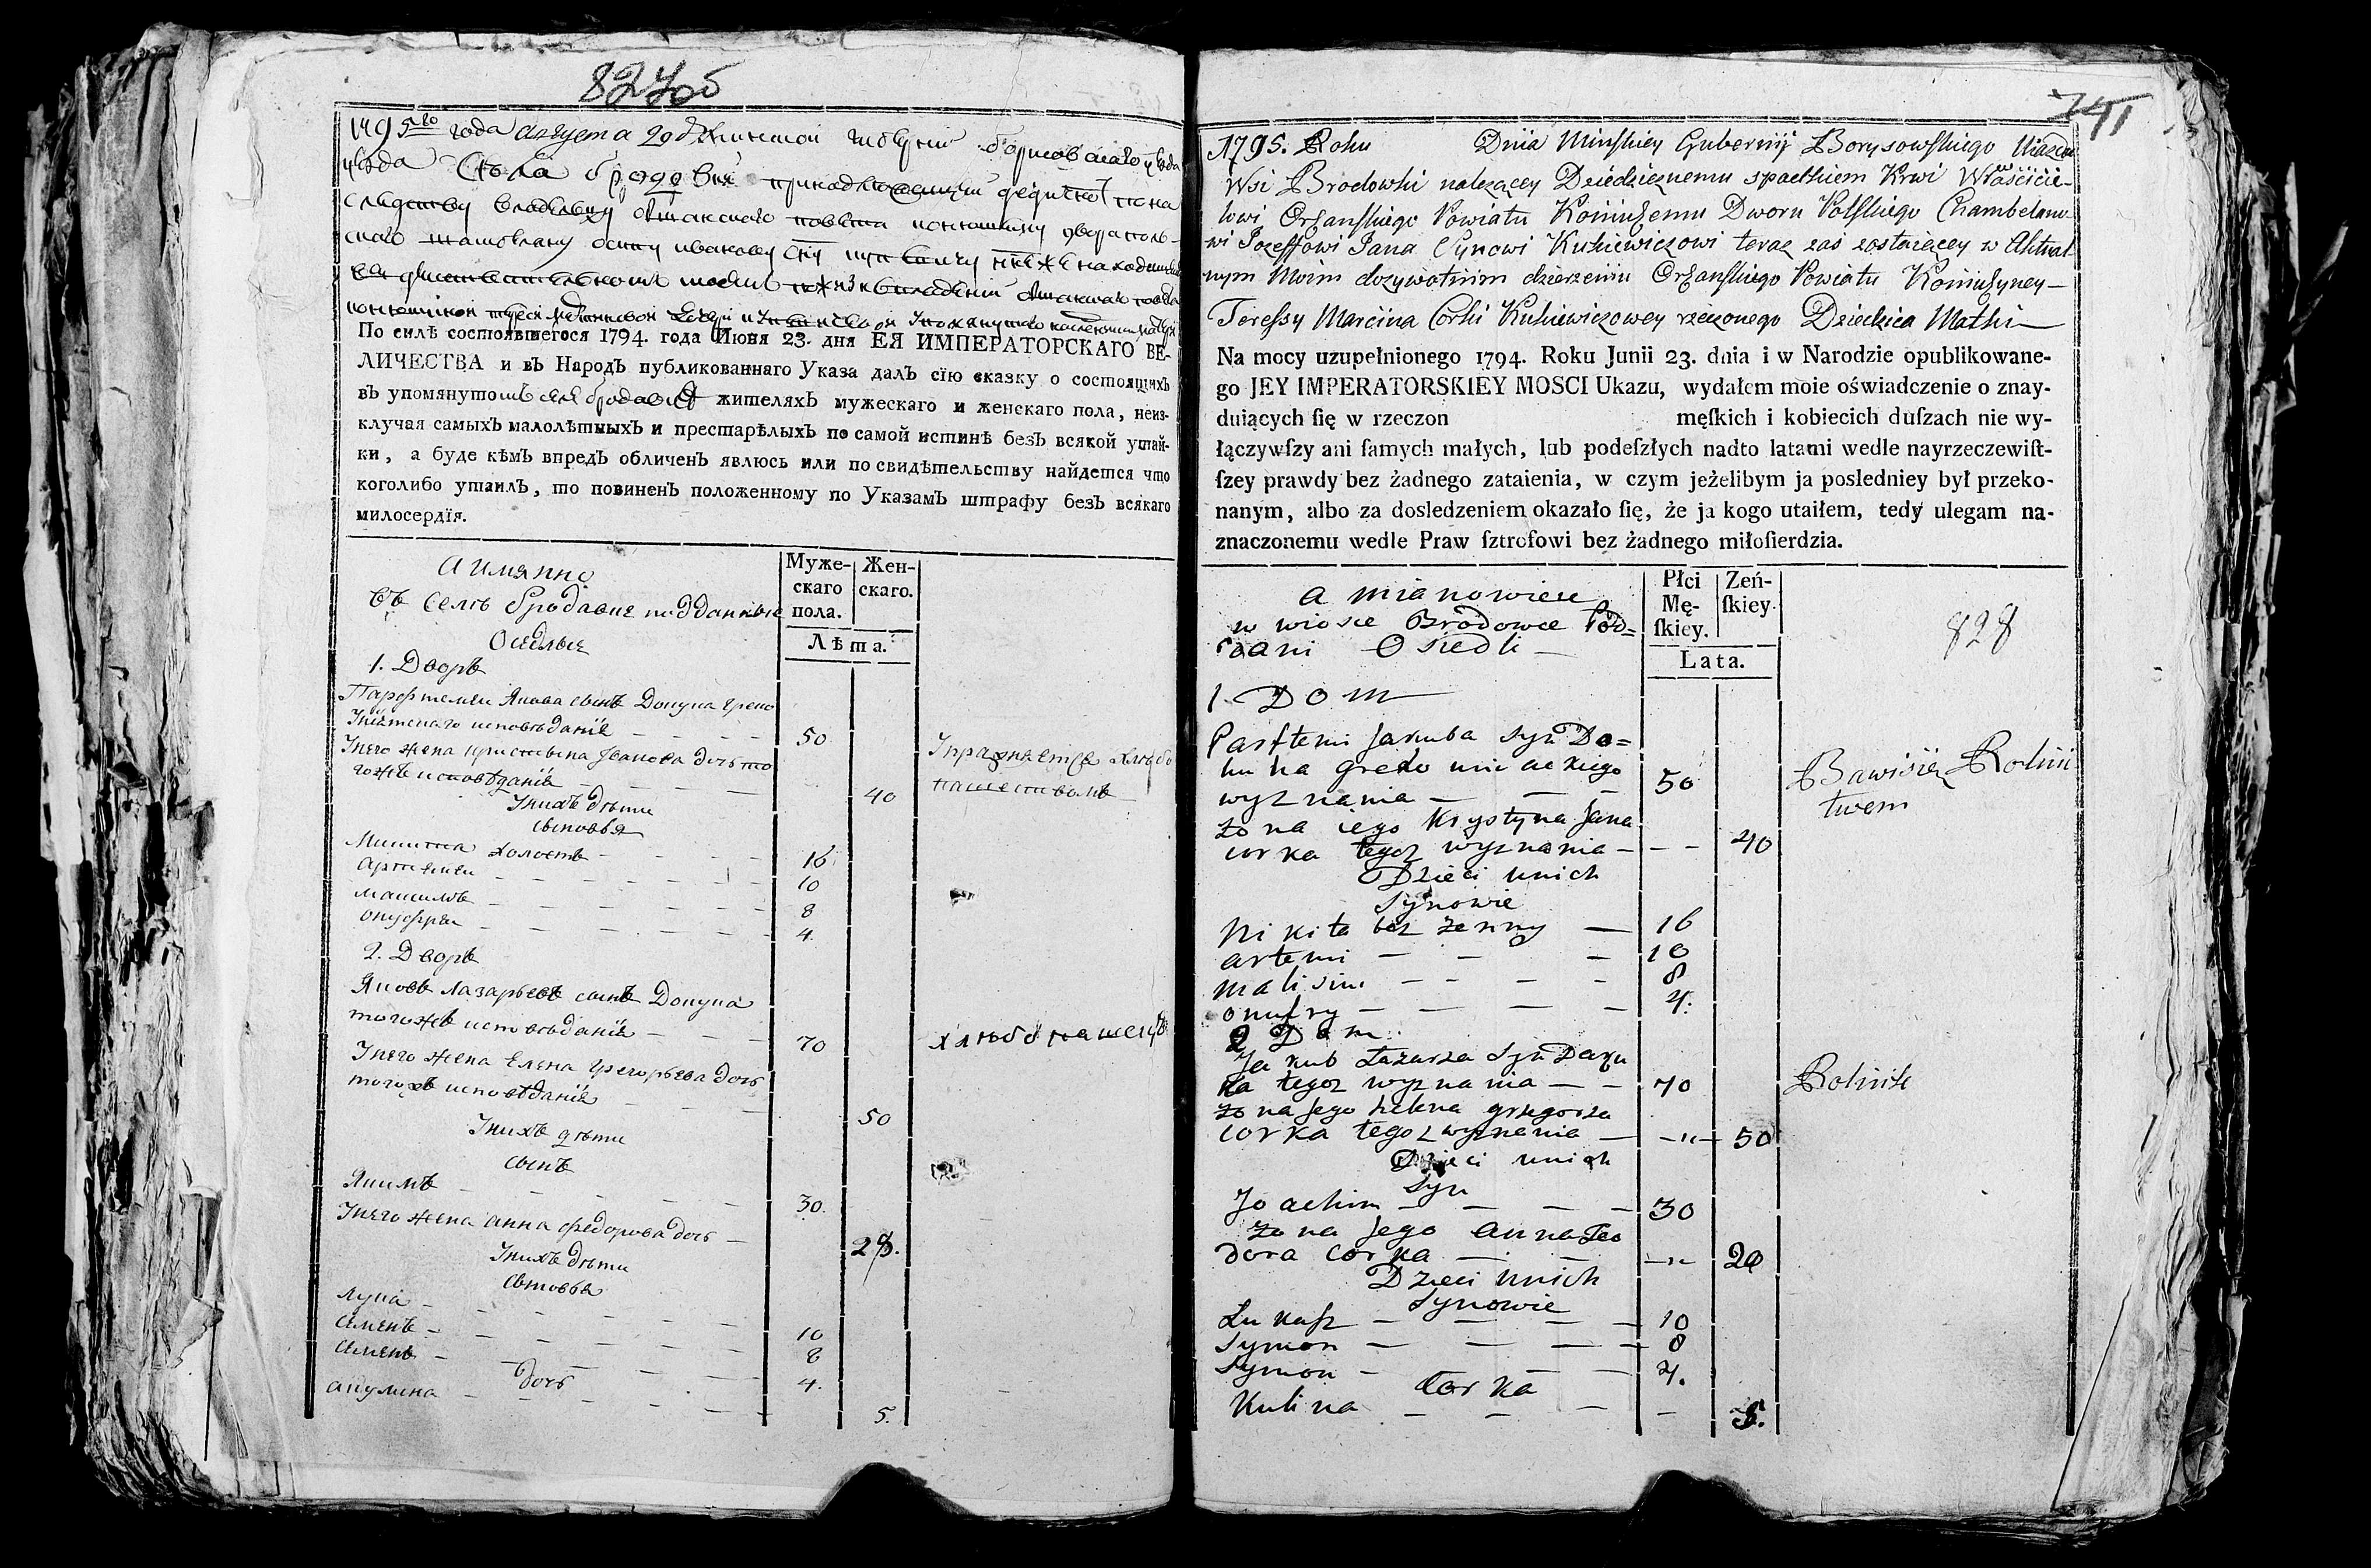 827об
1795го года августа 29 д Минской губернии Борисовскаго уезда
села бродовки принадлежащий
следству владельцу Ошмянского повета конюшему двора поль-
По силѣ состоявшегося 1794. года Июня 23. дня ЕЯ ИМПЕРАТОРСКАГО ВЕ-
ЛИЧЕСТВА и въ Народъ публикованнаго Указа далъ сїю сказку о состоящихъ
въ упомянутомъ селѣ бродавкѣ жителяхъ мужескаго и женскаго пола, неиз-
ключая самыхъ малолѣтныхъ и престарѣлыхъ по самой истинѣ безъ всякой утай-
ки, а буде кѣмъ впредъ обличенъ явлюсь или по свидѣтельству найдется что
коголибо утаилъ, то повиненъ положенному по Указамъ штрафу безъ всякаго
милосердїя.
а имянно
въ селѣ бродавке подданные
Оседлые
Муже-
скаго
пола.
Жен-
скаго.
Лѣта.
1. Дворъ
Парфтемеи Якова сынъ Докука греко
униятскаго исповѣданiя — — — 50
У него жена кристына Иванова дочь то
гожъ исповѣданiя — — — 40
Упражняется хлебо
пашествомъ
У нихъ дѣти
сыновья
Микита холостъ — — — 16
Артемеи — — — 10
Максимъ — — — 8
Онуфреи — — — 4.
2. Дворъ
Яковъ Лазарьевъ сынъ Докука
тогожъ исповѣданiя — — — 70
хлебопашецъ
У него жена Елена Григорьева дочь
тогожъ исповѣданiя — — — 50
У нихъ дѣти
сынъ
Якимъ — — — 30.
У него жена анна федорова дочь — 28.
У нихъ дѣти
сыновья
Лука — — — 10
Семенъ — — — 8
Семенъ — — — 4.
дочь
акулина — — — 5.
741
1795. Roku Dnia Minskiey Gubernij Borysowskiego Uiazdu
Wsi Brodowki nalezącey Dziedzicznemu spadkiem Krwi Właścicie-
lowi Orżanskiego Powiatu Koniuszemu Dworu Polskiego Chambelano-
wi Jozeffowi Jana Synowi Kukiewiczowi teraz zas zostaiącey w Aktual-
nym Moim dozywotnim dzierzeniu Orżanskiego Powiatu Koniuszyney—
Teressy Marcina Corki Kukiewiczowey rzeczonego Dziedzica Matki—
Na mocy uzupełnionego 1794. Roku Junii 23. dnia i w Narodzie opublikowane-
go JEY IMPERATORSKIEY MOSCI Ukazu, wydałem moie oświadczenie o znay-
duiących ſię w rzeczon męſkich i kobiecich duſzach nie wy-
łączywſzy ani ſamych małych, lub podeſzłych nadto latami wedle nayrzeczewiſt-
ſzey prawdy bez żadnego zataienia, w czym jeżelibym ja posledniey był przeko-
nanym, albo za dosledzeniem okazało ſię, że ja kogo utaiłem, tedy ulegam na-
znaczonemu wedle Praw ſztrofowi bez żadnego miłoſierdzia.
a mianowicie
w wiosce Brodowce Pod=
dani Osiedli —
Płci
Mę-
ſkiey.
Zeń-
ſkiey.
Lata.
828
1. Dom
Parftemi Jakuba syn Do=
kuka greko uniackiego
wyznania — — — 50
Bawi się Rolnic
twem
żona iego Krystyna Jana
corka tegoz wyznania — — — 40
Dzieci u nich
Synowie
Nikita bez żenny — 16
artemi — — — 10
maksim — — — — 8
onufry — — — — 4.
2 Dom.
Jakub Łazarza Syn Doku
ka tegoz wyznania — — 70
Rolnik
żona Jego helena grzegorza
corka tegoz wyznania — — " — 50
Dzieci u nich
Syn
Joachim — — — — 30
żona Jego anna Teo
dora corka — — — " — 20
Dzieci u nich
Synowie
Łukasz — — — — 10
Symon — — — — 8
Symon — — — 4.
Corka
Kulina — — — — 5.